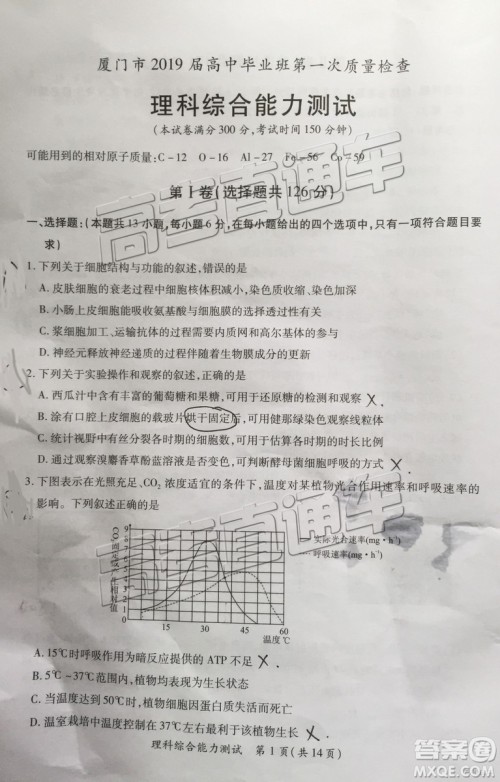 厦门市2019届高中毕业班第一次质量检查
理科综合能力测试
(本试卷满分300分,考试时间150分钟)
可能用到的相对原子质量:C-12 O-16 Al-27 Fe-56 Co-59
第Ⅰ卷(选择题共126分)
一、选择题:(本题共13小题,每小题6分,在每小题给出的四个选项中,只有一项符合题目要
求)
1. 下列关于细胞结构与功能的叙述,错误的是
A. 皮肤细胞的衰老过程中细胞核体积减小,染色质收缩、染色加深
B. 小肠上皮细胞能吸收氨基酸与细胞膜上的载体有关
C. 浆细胞加工、运输抗体的过程与内质网和高尔基体有关
D. 神经元释放神经递质的过程伴随着生物膜成分的更新
2. 下列关于实验操作和观察的叙述,正确的是
A. 西瓜汁中含有丰富的葡萄糖和果糖,可用于还原糖的检测和观察 X.
B. 涂有口腔上皮细胞的载玻片烘干固定后,可用健那绿染色观察线粒体
C. 统计一个视野中的有丝分裂各时期的细胞数,可用于估算各时期的比例
D. 通过观察溴麝香草酚蓝溶液是否变色,可判断酵母菌细胞呼吸的方式 X.
3. 下图表示在光照充足、CO₂浓度适宜的条件下,温度对某植物光合作用速率和呼吸速率的
影响。下列叙述正确的是
CO₂的吸收或产生相对值
9
8
7
6
5
4
3
2
1
0
15 30 45 60
温度℃
实际光合速率(mg·h⁻¹)
呼吸速率(mg·h⁻¹)
A. 15℃时呼吸作用为暗反应提供的ATP不足 X.
B. 5℃-37℃范围内,植物均表现为生长状态
C. 当温度达到55℃时,植物可能因蛋白质失活而死亡
D. 温室栽培中温度控制在37℃左右最利于该植物的生长 X.
理科综合能力测试 第1页(共14页)
高考直通车
高考直通车
答案圈
MXQE.COM